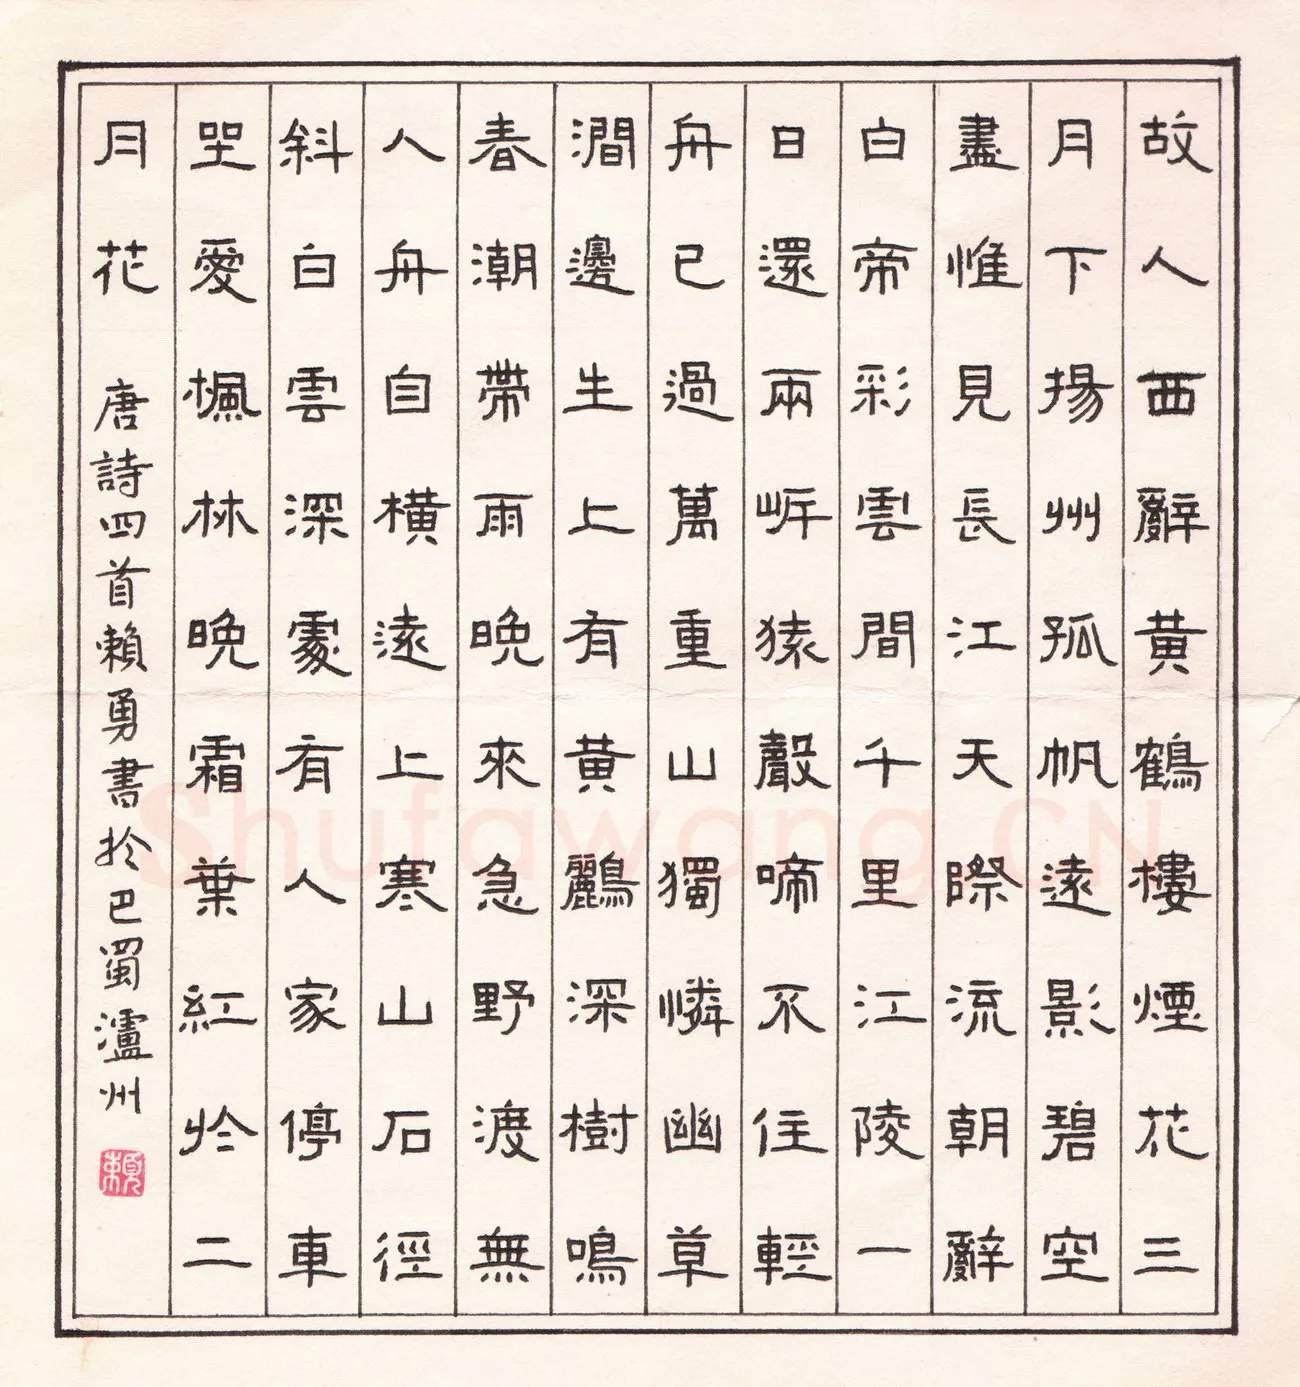 故人西辭黃鶴樓煙花三
月下揚州孤帆遠影碧空
盡惟見長江天際流朝辭
白帝彩雲間千里江陵一
日還兩岸猿聲啼不住輕
舟已過萬重山獨憐幽草
澗邊生上有黃鸝深樹鳴
春潮帶雨晚來急野渡無
人舟自橫遠上寒山石徑
斜白雲深處有人家停車
坐愛楓林晚霜葉紅於二
月花
唐詩四首賴勇書於巴蜀瀘州
賴
Shufawang.CN